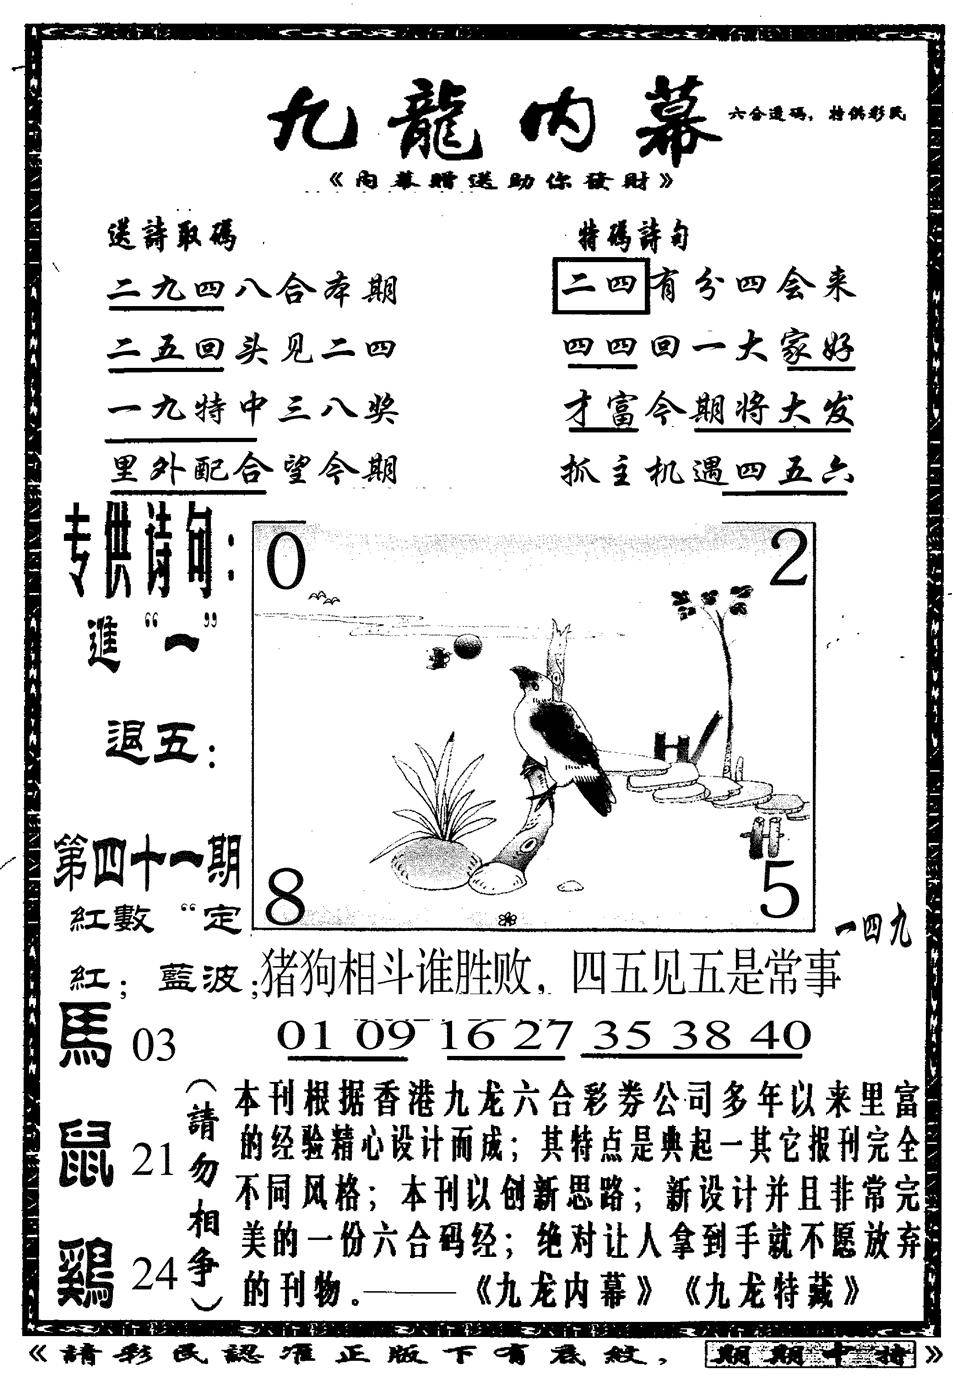 九龍内幕
六合透码，特供彩民
《内幕贈送助你發財》
送詩取碼
二九四八合本期
二五回头见二四
一九特中三八奖
里外配合望今期
特碼詩句
二四有分四会来
四四回一大家好
才富今期将大发
抓主机遇四五六
专供诗句：
進“一”
退五：
第四十一期
紅數“定
紅；藍波；
0 2
8 5
一四九
猪狗相斗谁胜败，四五见五是常事
01 09 16 27 35 38 40
馬 03
鼠 21
鷄 24
（請勿相争）
本刊根据香港九龙六合彩券公司多年以来里富
的经验精心设计而成；其特点是典起一其它报刊完全
不同风格；本刊以创新思路；新设计并且非常完
美的一份六合码经；绝对让人拿到手就不愿放弃
的刊物。——《九龙内幕》《九龙特藏》
《請彩民認准正版下有底紋，期期中特》